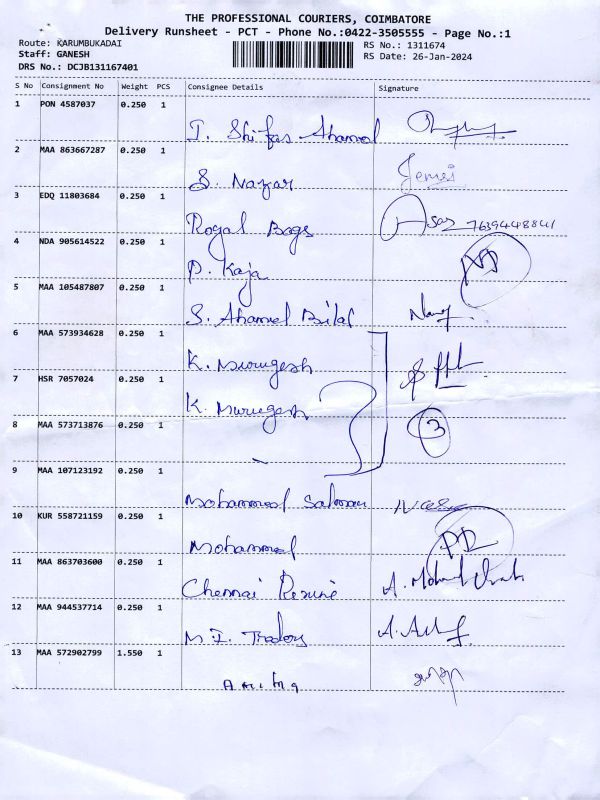 THE PROFESSIONAL COURIERS, COIMBATORE
Delivery Runsheet - PCT - Phone No.:0422-3505555 - Page No.:1
Route: KARUMBUKADAI RS No.: 1311674
Staff: GANESH RS Date: 26-Jan-2024
DRS No.: DCJB131167401
S No Consignment No Weight PCS Consignee Details Signature
1 PON 4587037 0.250 1
J. Shifas Ahamed
2 MAA 863667287 0.250 1
S. Nazar
3 EDQ 11803684 0.250 1
Royal Bags 7639448841
4 NDA 905614522 0.250 1
P. Kaja
5 MAA 105487807 0.250 1
S. Ahamed Bilal
6 MAA 573934628 0.250 1
K. Murugesh
7 HSR 7057024 0.250 1
K. Murugesh
8 MAA 573713876 0.250 1 3
9 MAA 107123192 0.250 1
Mohammed Salman
10 KUR 558721159 0.250 1
Mohammed
11 MAA 863703600 0.250 1
Chennai
12 MAA 944537714 0.250 1
M.I. Traders
13 MAA 572902799 1.550 1